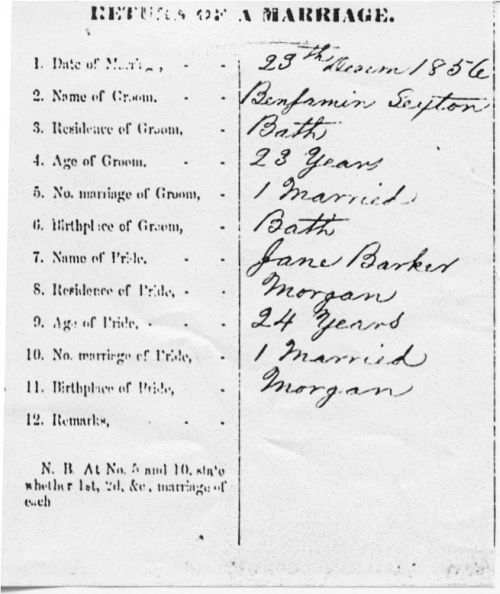 RETURN OF A MARRIAGE.
1. Date of Marriage, - - 23th Desem 1856
2. Name of Groom, - - Benjamin Sexton
3. Residence of Groom, - Bath
4. Age of Groom, - - 23 Years
5. No. marriage of Groom, - 1 Married
6. Birthplace of Groom, - Bath
7. Name of Bride, - - Jane Barker
8. Residence of Bride, - - Morgan
9. Age of Bride, - - - 24 Years
10. No. marriage of Bride, - 1 Married
11. Birthplace of Bride, - Morgan
12. Remarks, - - -
N. B. At No. 5 and 10, state
whether 1st, 2d, &c., marriage of
each